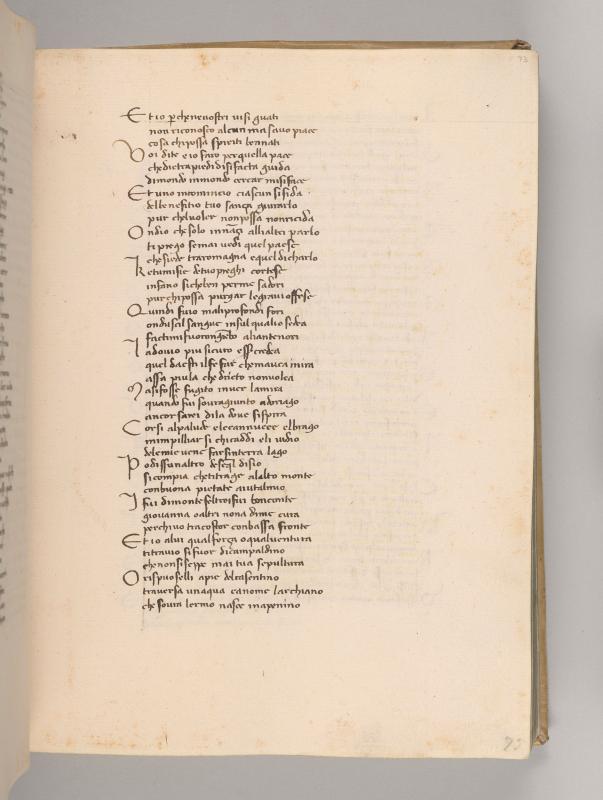 73
Et io perche nenostri visi guati
non riconosco alcun ma savo piace
cosa chipossa spiriti bennati
Voi dite e io faro perquella pace
chedietrapiedi disifacta guida
dimondo inmondo cercar misiface
Et uno incomincio ciascun sifida
delbenefitio tuo sanza giurarlo
pur chelvoler nonpossa nonricida
Ondio chesolo innanzi allialtri parlo
ti prego semai vedi quel paese
chesiede traromagna equel dicharlo
Ketumisie detuo prieghi cortese
infano sicheben perme sadori
purchipossa purgar legravi offese
Quindi fuio maliprofondi fori
ondusci lsangue insul qualio sedea
factimi fuorongrebo aliantenori
Ia dovio piu sicuro essecredea
quel daesti ilfe far chemavea inira
assa piula chedricto nonvolea
Masifosse fugito inver lamira
quando fui sovragiunto adoriago
ancor sarei dila dove sispira
Corsi alpalude elecannucce elbrago
mimpilliar si chicaddi eli vidio
delemie vene farsinterra lago
Poi dissunaltro deseql disio
si compia chetitragge alalto monte
conbuona pietate aiutalmio
I fui dimontefeltro ifui bonconte
giovanna oaltri nona dime cura
perchivo tracostor conbassa fronte
Et io alui qualforza oqualventura
titravio sifuor dicampaldino
chenonsiseppe mai tua sepultura
O rispuoselli apie delcasentino
traversa unaqua canome larchiano
che sovra lermo nasce inapenino
73